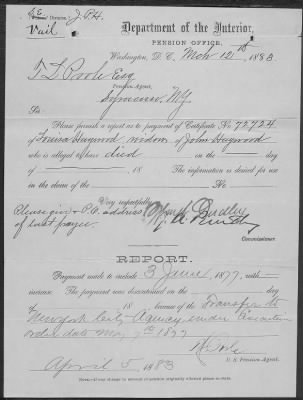 Department of the Interior,
PENSION OFFICE,
Washington, D.C., Mch 12th 1883
T. L. Poole Esq
Pension Agent,
Syracuse, N.Y.
Sir:
Please furnish a report as to payment of Certificate No. 72724
of Louisa Haywood, widow of John Haywood
who is alleged to have died on the day
of 18 . The information is desired for use
in the claim of the No.
Very respectfully,
Please give P.O. address
of last payee.
Commissioner.
REPORT.
Payment made to include 3 June 1877, with
increase. The payment was discontinued on the day
of 18 because of the transfer to
New York City Agency under Executive
order date May 7th 1877
U. S. Pension Agent.
April 5 1883